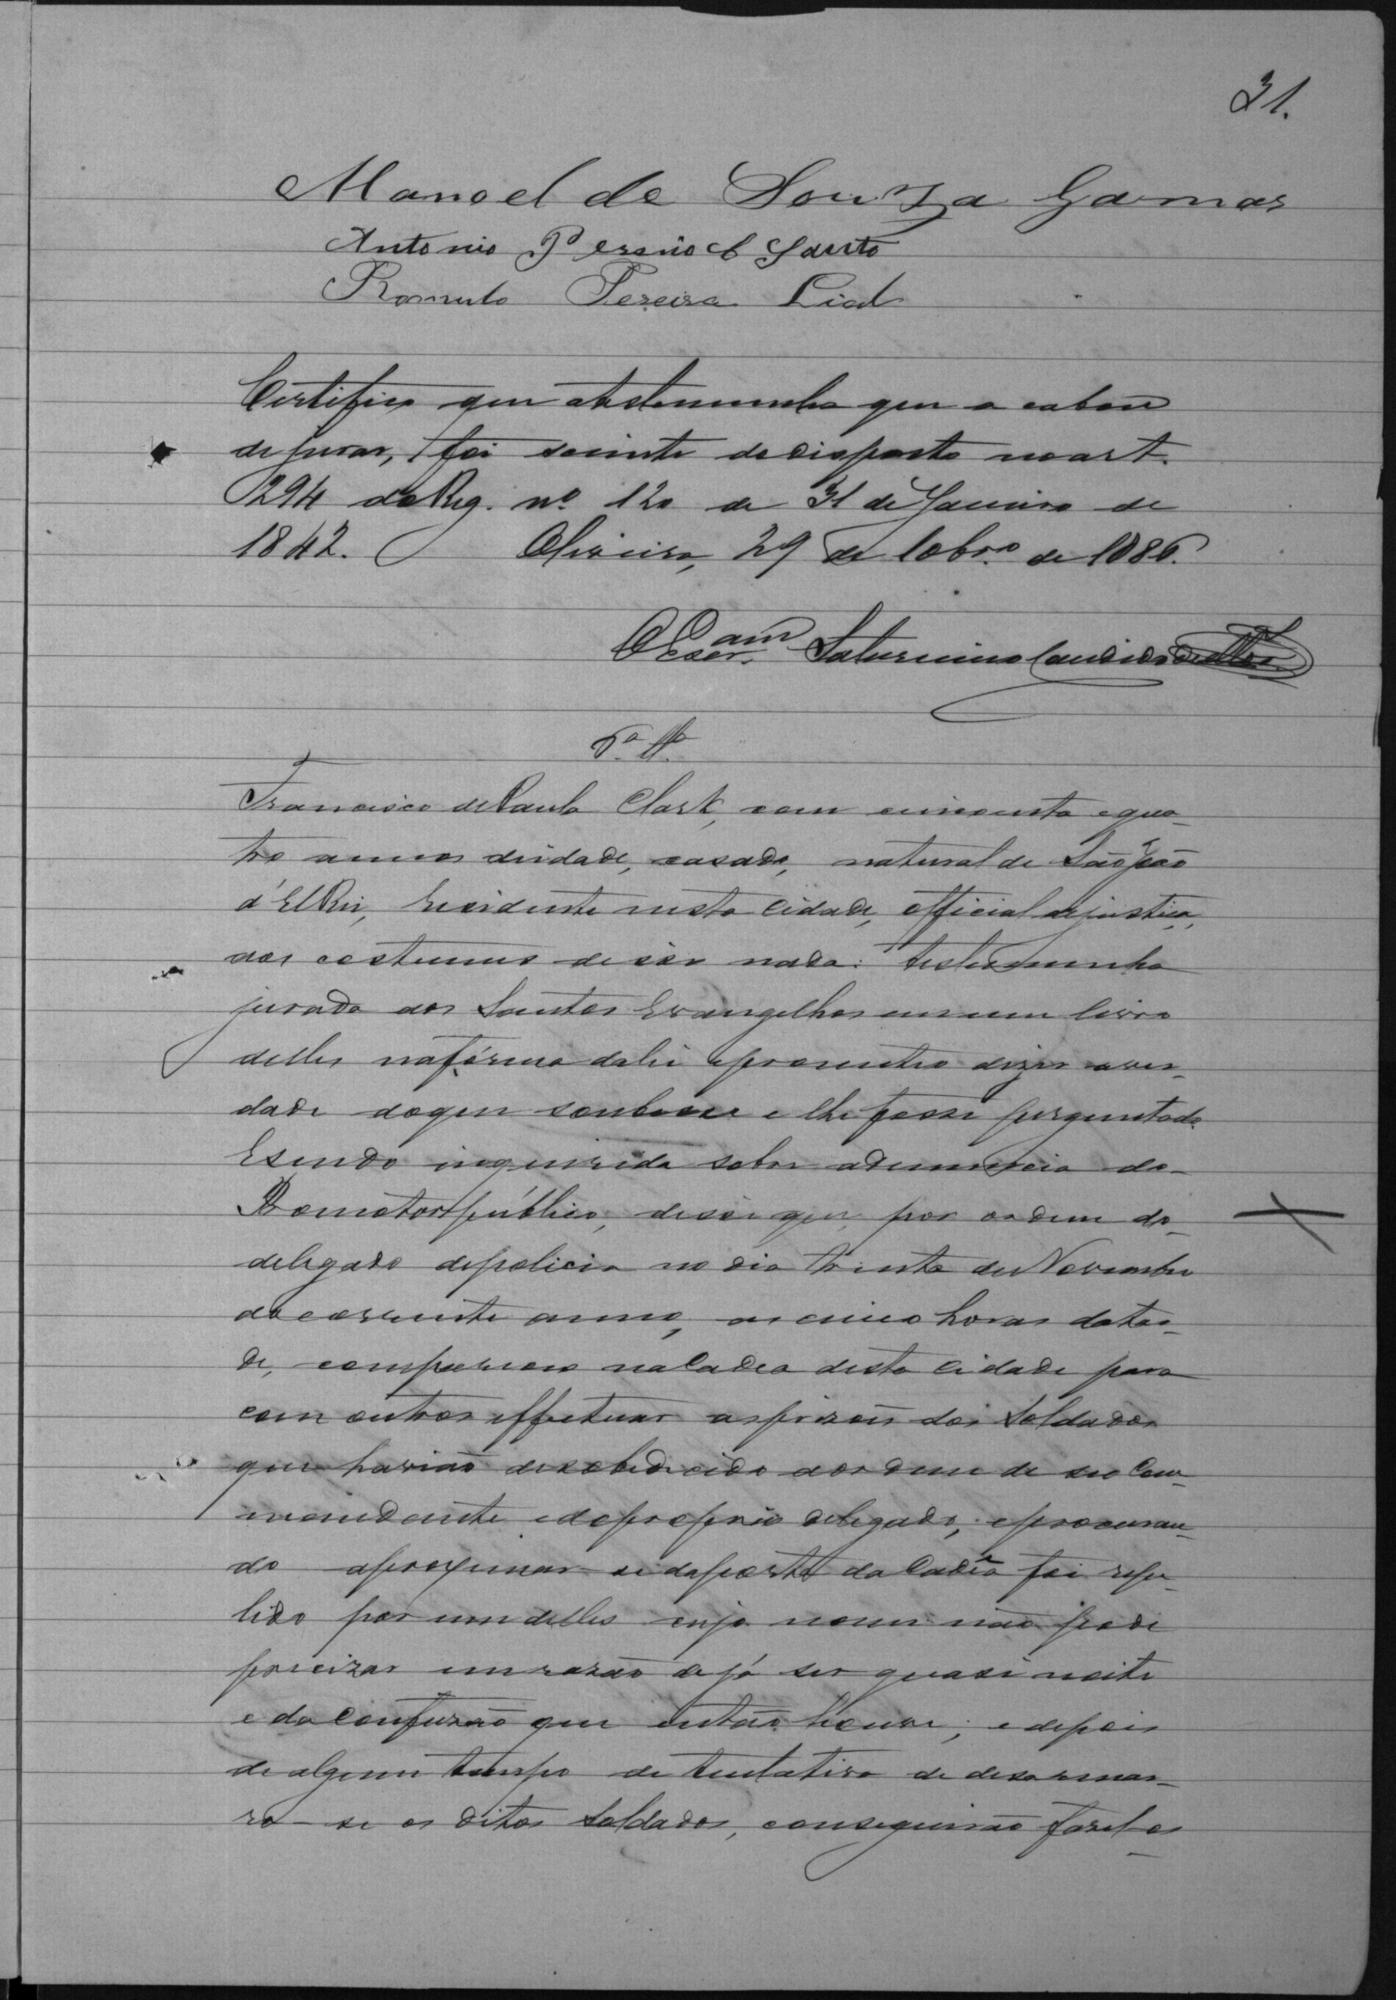 31.
Manoel de Souza Gomes
Antonio
Romulo Pereira Leal
Certifico que atestemunha que acabou
dejurar, foi sciente dodisposto noart.
294 doReg. nº 120 de 31 deJaneiro de
1842. Oliveira, 29 de 10bro. de 1886.
O Escram. Saturnino Candido
6ª Tª
Francisco dePaula Clark, com cincoenta equa-
tro annos deidade, casado, natural de SãoJoão
d'ElRei, residente nesta Cidade, official dejustiça,
aos costumes disse nada: testemunha
jurada aos Santos Evangelhos em um livro
delles nafórma dalei eprometteo dizer aver-
dade doque soubesse e lhe fosse perguntado.
Esendo inquirida sobre adenuncia do
Promotorpúblico, disse que por ordem do
delegado depolicia no dia trinta deNovembro
docorrente anno, as cinco horas datar-
de, compareceo naCadea desta Cidade para
com outros effectuar asprizoẽs dos Soldados
que havião desobedecido aordem de seo Com-
mandante edoproprio delegado; eprocuran-
do aproximar-se daporta daCadêa foi repe-
lido por um delles cujo nome não pode
precizar emrazão dejá ser quasi noite
e da Confuzão que então houve; e depois
de algum tempo de tentativa de desarmar-
se os ditos Soldados, conseguirão fazel-o